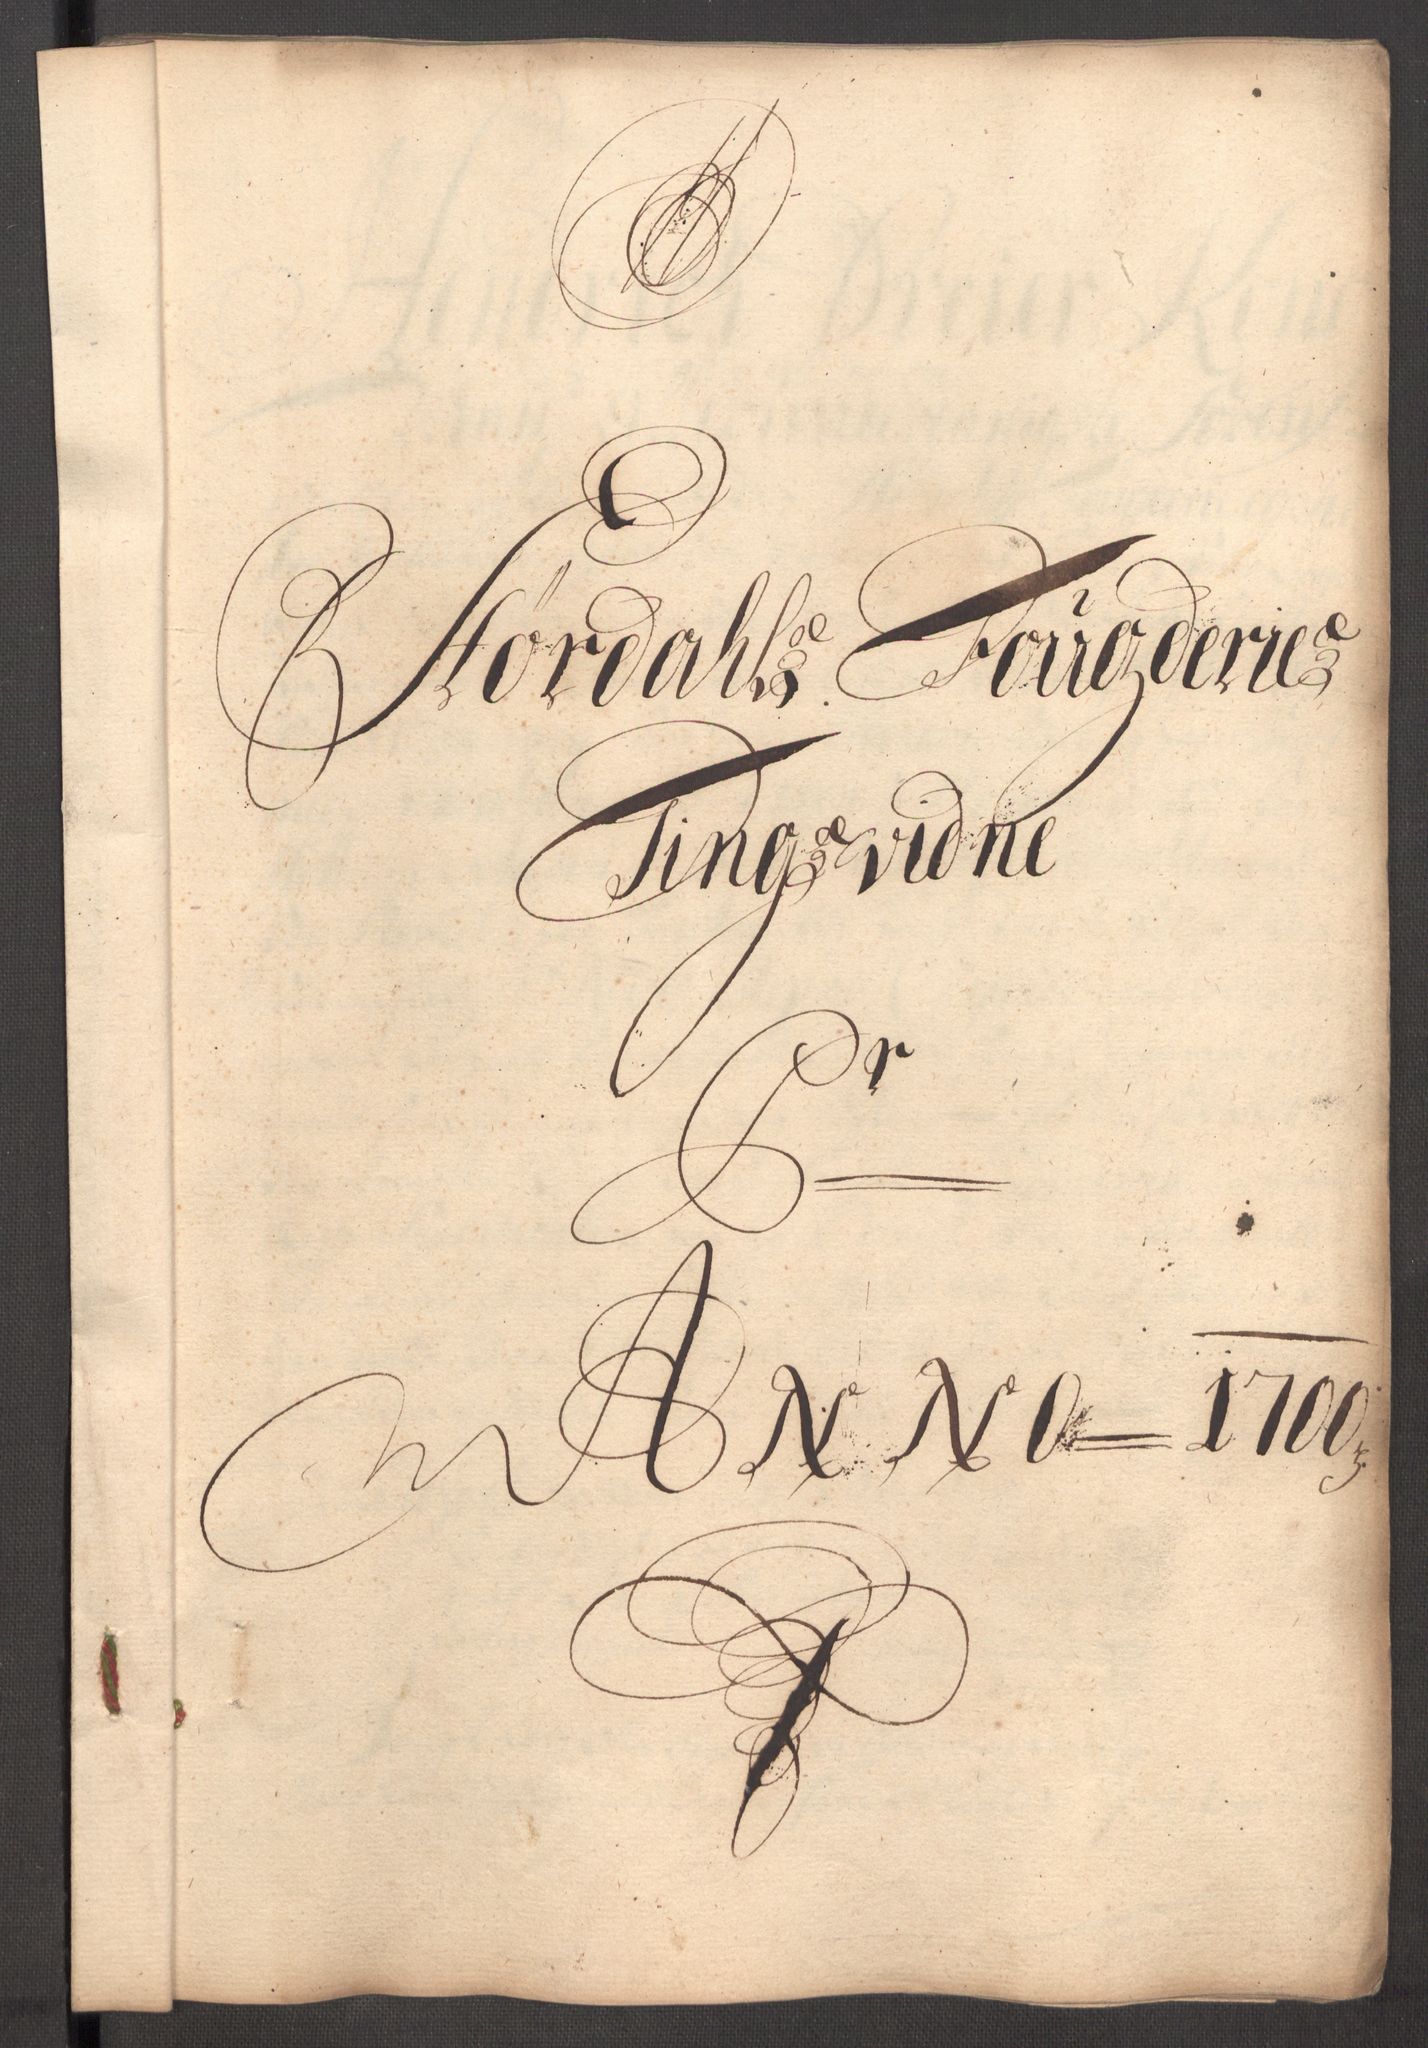 Størdahls Foügderies
Tingsvidne
Pr
ANNO 1700